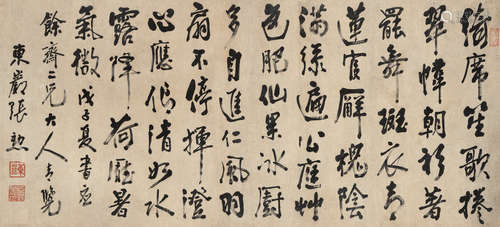 綺席笙歌捲
翠幃朝衫著
罷舞斑衣
蓮官廨槐陰
滿綠遍公庭艸
色肥仙果冰廚
多自進仁風羽
扇不停揮澄
心應似清如水
露 荷 暑
氣微 戊子夏書應
餘齋二兄大人青覽
東巖張勲